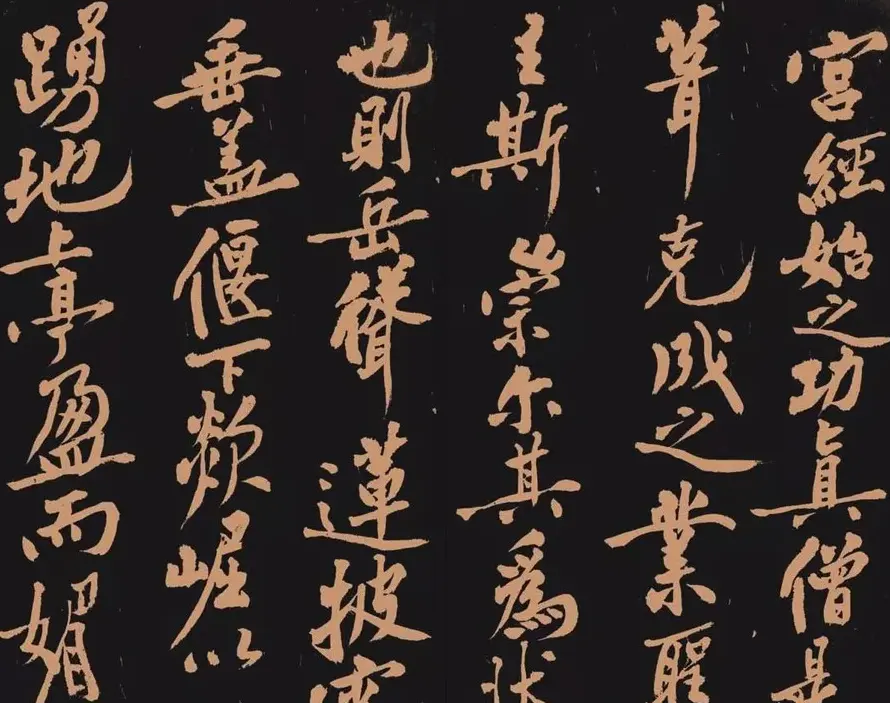 宮經始之功眞僧是
葺克成之業聖
主斯崇尔其為狀
也則岳聳蓮披雲
垂盖偃下欻崛以
踴地上亭盈而媚